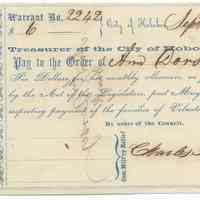 Warrant No. 2242 City of Hoboken, Sep
$ 6
Treasurer of the City of Hobo
Pay to the Order of Ann
Six Dollars for her monthly allowance, as
by the Act of the Legislature, past May
respecting payment of the families of Volunte
By order of the Council.
Com. Military Relief
Charles